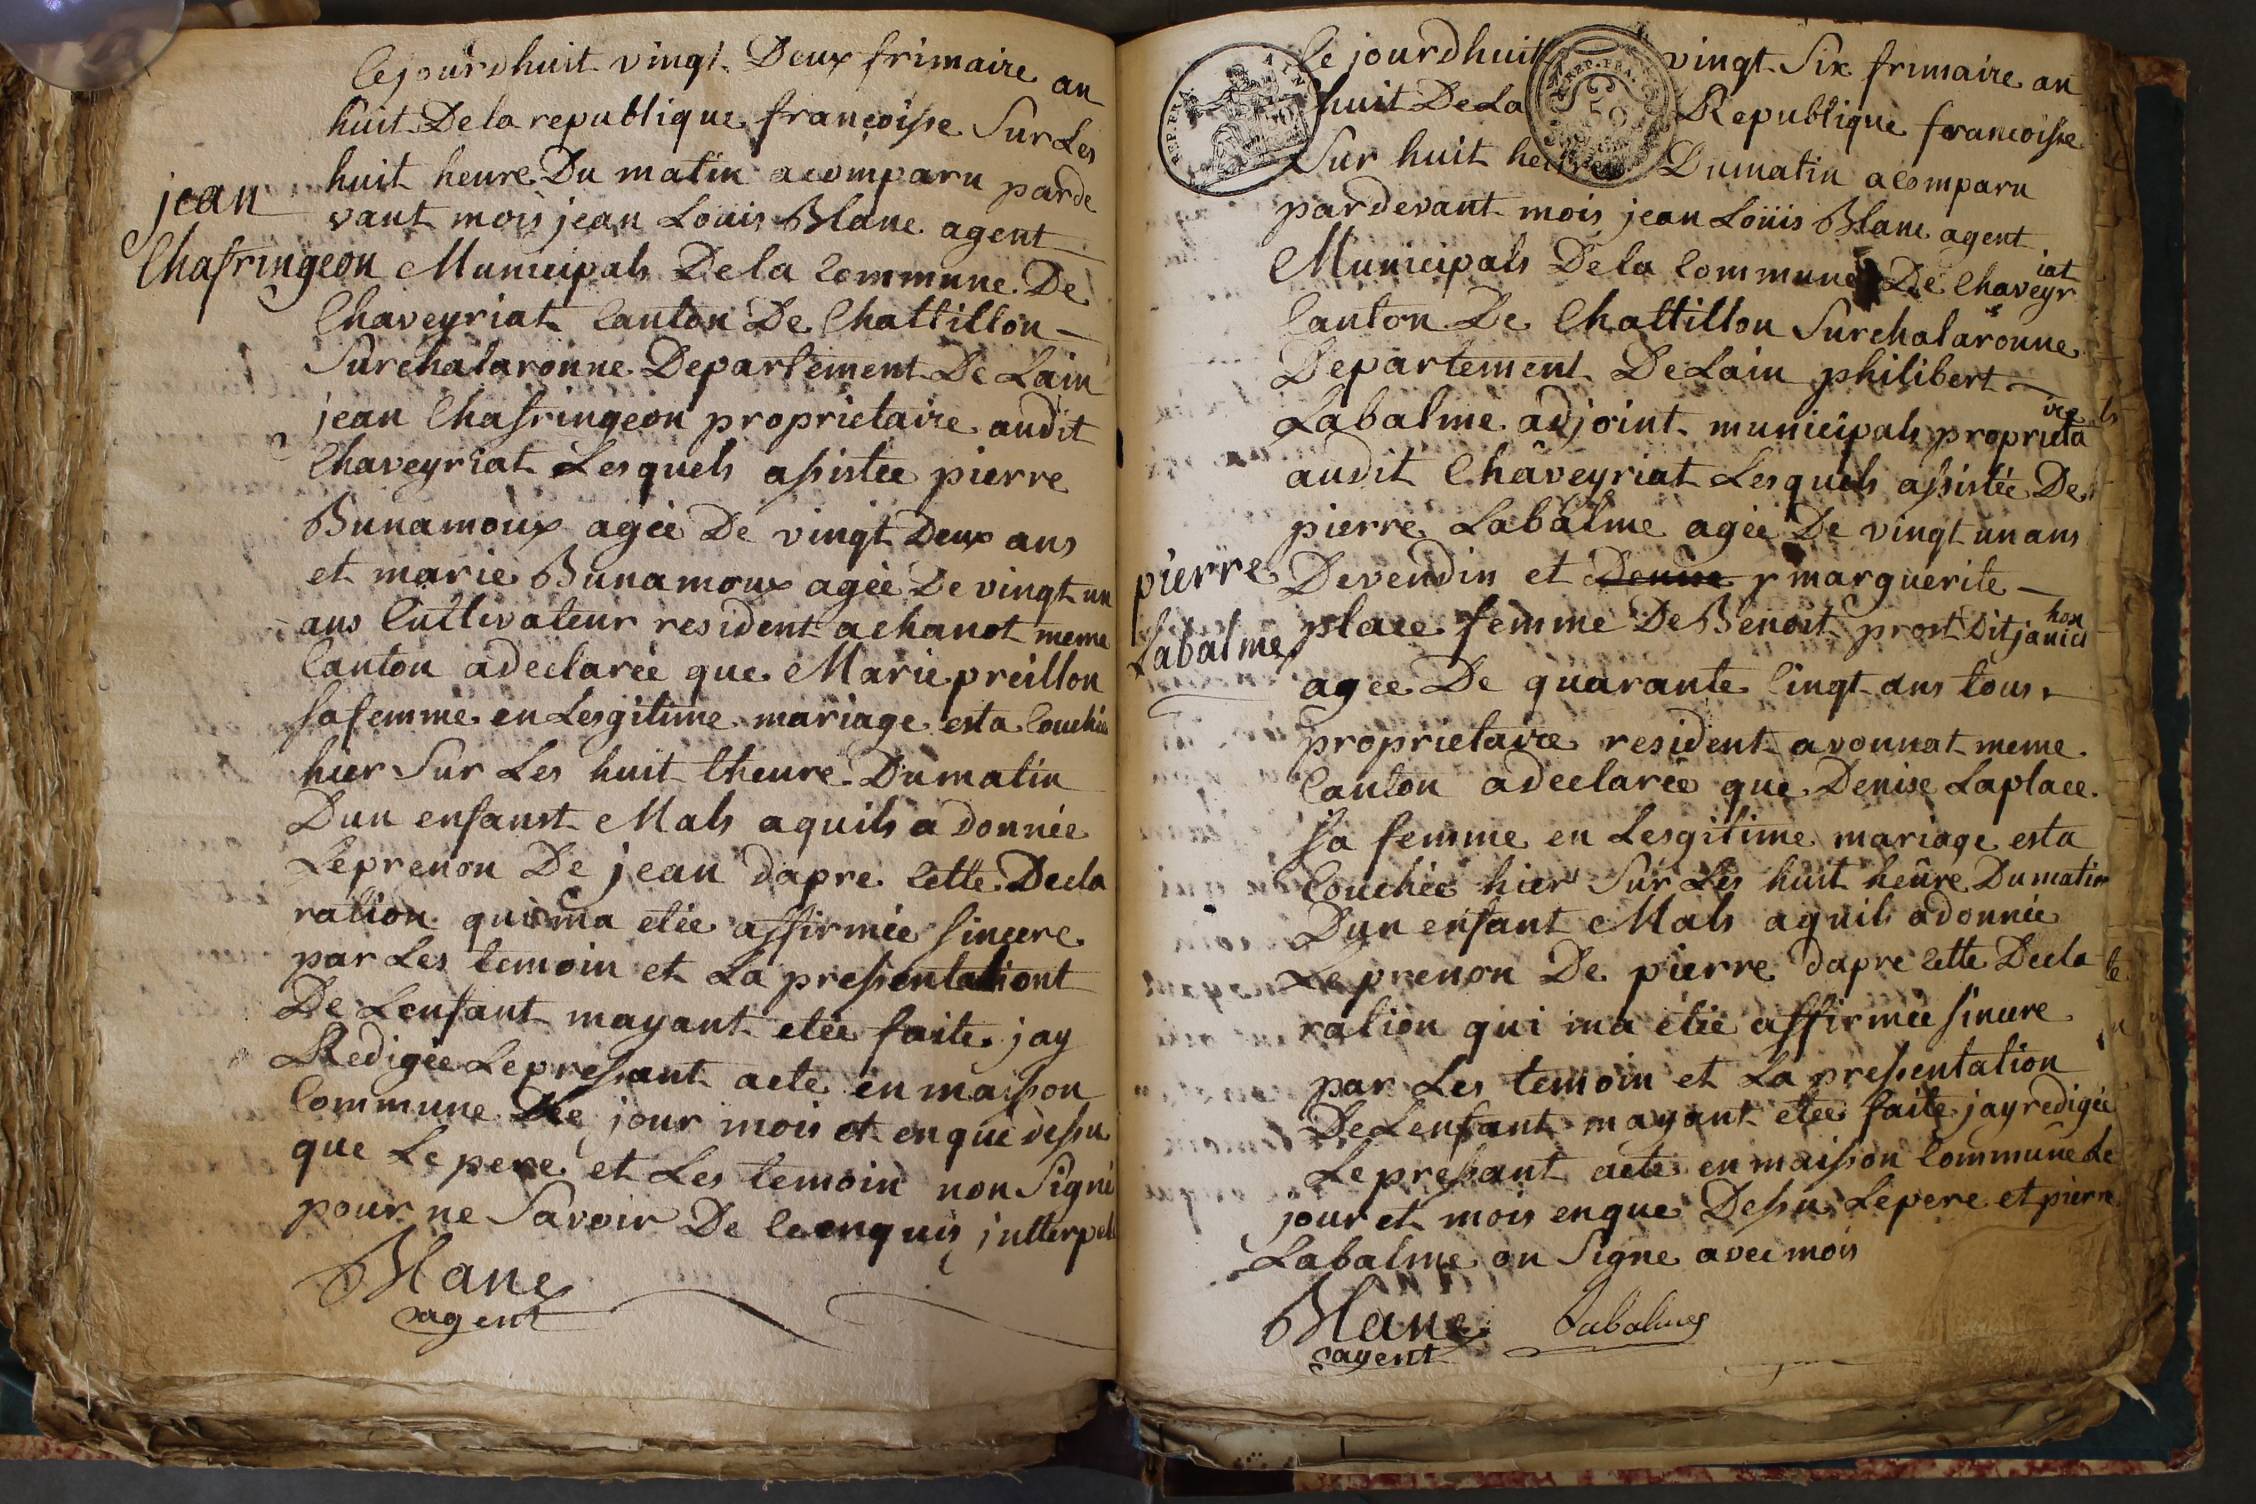 Cejourdhuit vingt Deux frimaire an
huit De la republique françoisse Sur Les
huit heure Du matin acomparu parde
vant mois jean Louis Blanc agent
jean
Chasringeon
Municipals De la Commune De
Chaveyriat Canton De Chattillon
Surchalaronne Departement De Lain
jean Chasringeon proprietaire audit
Chaveyriat Lesquels assistée pierre
Bunamoux agée De vingt Deux ans
et marie Bunamoux agée De vingt un
ans Cultivateur resident a chanot meme
Canton adeclarée que Marie preillon
sa femme en Lesgitime mariage esta Couchée
hier Sur Les huit lheure Dumatin
Dun enfanst Mals aquils a donnée
Leprenon De jean dapre Cette Decla
ration qui ma etée affirmée sincere
par Les temoin et La pressentationt
De Lenfant mayant etée faite jay
Redigée Lepressant acte en maisson
Commune jour mois et enque dessu
que Le pere et Les temoin non Signé
pour ne Savoir De ce enquis jntterpel
Blanc
agent
Ce jourdhuit vingt Six frimaire an
huit De La Republique francoisse
Sur huit heure Dumatin acomparu
pardevant mois jean Loüis Blanc agent
Municipals De la Commune De Chaveyriat
Canton De Chattillon Surchalaronne
Departement De Lain philibert
Labalme adjoint municipals proprietaire
audit Chaveyriat Lesquels assistée De
pierre Labalme agée De vingt un ans
pierre
Labalme
Devendin et marguerite
place femme De Benoit prost Dit janichon
agee De quarante Cinqt ans tous
proprietaire resident avonnat meme
Canton adeclarée que Denise Laplace
sa femme en Lesgitime mariage esta
Couchée hier Sur Les huit heure Dumatin
Dun enfant Mals aquils adonnée
Le prenon De pierre dapre Cette Decla
ration qui ma etée affirmée sincere
par Les temoin et La pressentation
De Lenfant mayant etée faite jay redigée
Le pressant acte en maisson Commune Le
jour et mois enque Dessu Lepere et pierre
Labalme on Signe avec mois
Blanc
agent
Labalme
REP. FRA.
AIN
REP. FRA.
50